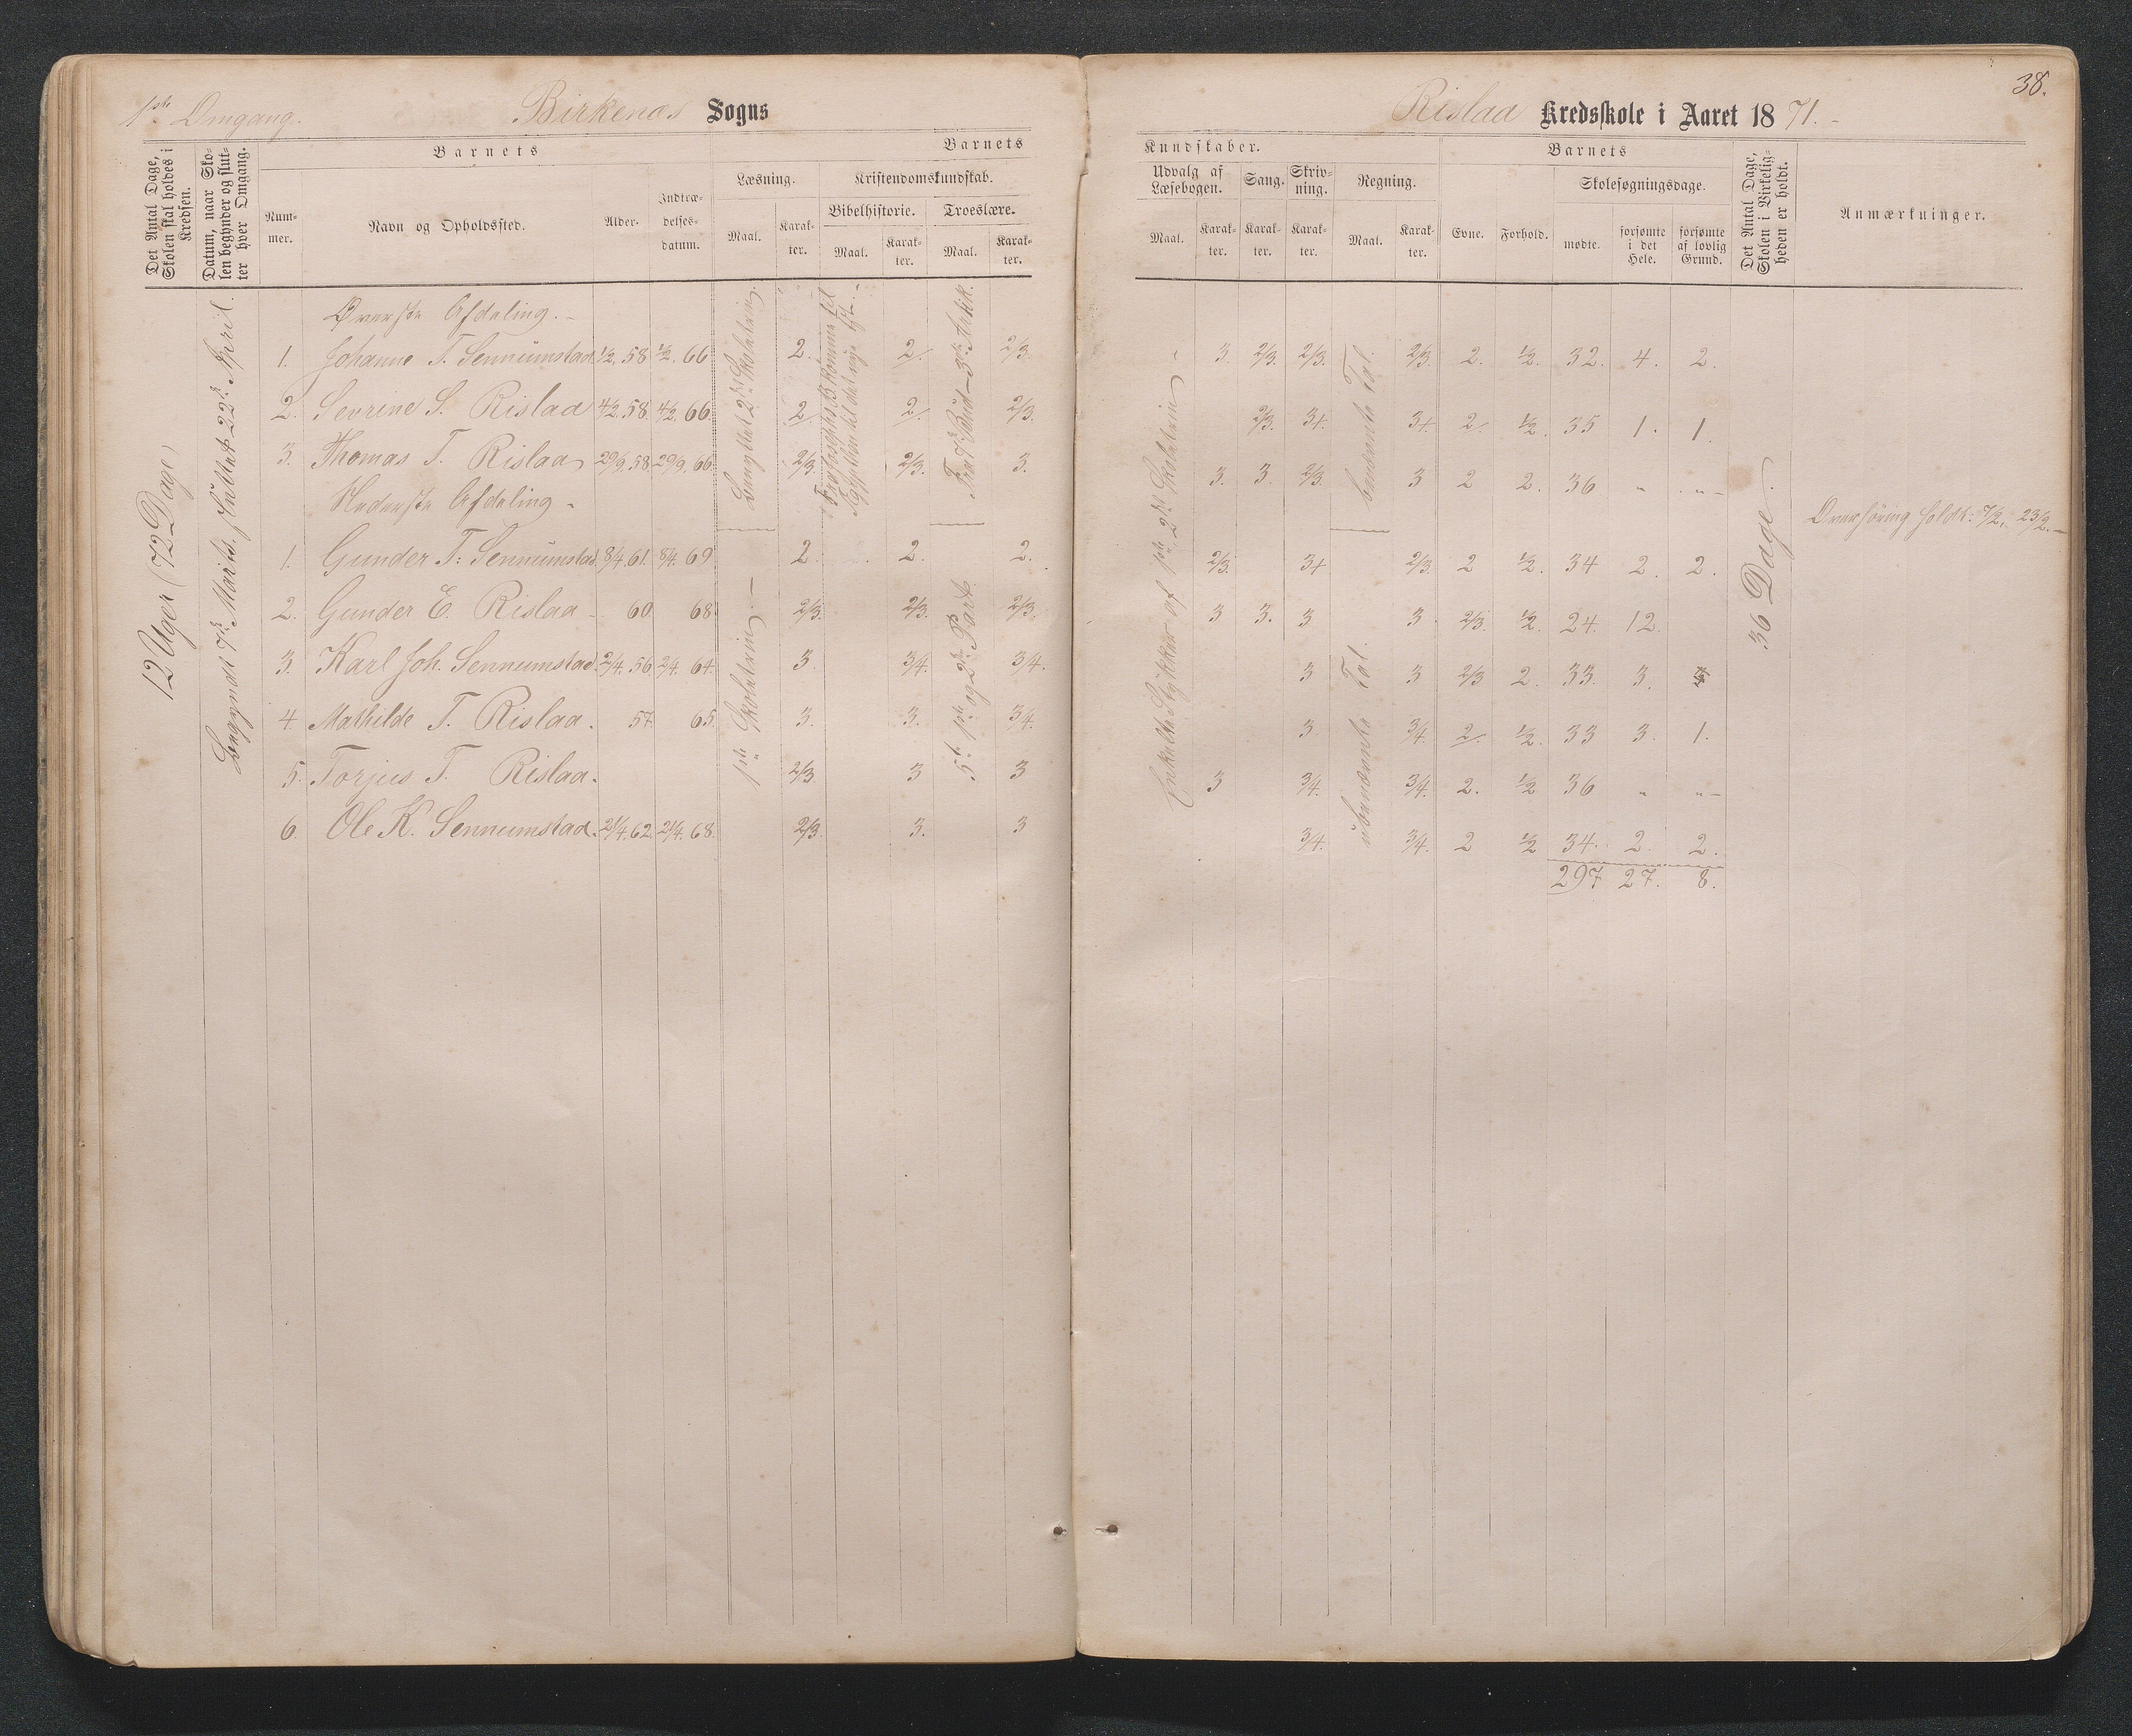 1ste Omgang.
Birkenæs Sogns
Det Antal Dage, Skolen skal holdes i Kredsen.
Datum, naar Skolen begynder og slutter hver Omgang.
Barnets
Barnets
Læsning.
Kristendomskundskab.
Bibelhistorie.
Troeslære.
Nummer.
Navn og Opholdssted.
Alder.
Indtrædelsesdatum.
Maal.
Karakter.
Maal.
Karakter.
Maal.
Karakter.
12 Uger (72 Dage)
Begyndt 7de Marts, sluttet 22de April.
Øverste Afdeling.
1. Johanne T. Sennumstad 1/2. 58 1/2. 66 2. 2. 2/3.
2. Sevrine S. Rislaa 4/2. 58. 4/2. 66 2. 2. 2/3.
3. Thomas T. Rislaa 29/9. 58. 29/9. 66. 2/3. 2/3. 3.
Nederste Afdeling.
1. Gunder T. Sennumstad. 8/4. 61. 8/4. 69 2. 2. 2.
2. Gunder E. Rislaa 60. 68. 2/3. 2/3. 2/3.
3. Karl Joh. Sennumstad. 2/4. 56 2/4. 64. 3. 3/4. 3/4.
4. Mathilde T. Rislaa. 57. 65. 3. 3. 3/4.
5. Torjus T. Rislaa. 2/3 3 3
6. Ole K. Sennumstad. 21/4. 62. 21/4. 68. 2/3. 3. 3
1ste Skoletrin.
5t. 1ste og 2de Part.
38.
Rislaa Kredsskole i Aaret 1871.
Kundskaber.
Barnets
Udvalg af Læsebogen.
Sang.
Skrivning.
Regning.
Skolesøgningsdage.
Maal.
Karakter.
Karakter.
Karakter.
Maal.
Karakter.
Evne.
Forhold.
mødte.
forsømte i det Hele.
forsømte af lovlig Grund.
Det Antal Dage, Skolen i Virkeligheden er holdt.
Anmærkninger.
Enkelte Stykker af 1ste, 2det Skoletrin
benævnte Tal.
ubenævnte Tal.
3. 2/3. 2/3. 2/3. 2. 1/2. 32. 4. 2.
2/3. 3+. 3+ 2. 1/2. 35 1. 1.
3. 3. 2/3. 3 2 2. 36 " "
2/3. 3+ 2/3. 2 1/2. 34 2. 2.
3 3. 3 3. 2/3. 1/2. 24. 12.
3 3 2/3 2. 33. 3.
3 3/4. 2. 1/2. 33 3. 1.
3 3/4. 3/4. 2. 1/2 36 " "
3/4. 3/4. 2 1/2 34. 2. 2.
297 27. 8.
36 Dage.
Overhøring holdt: 7/2, 23/2.